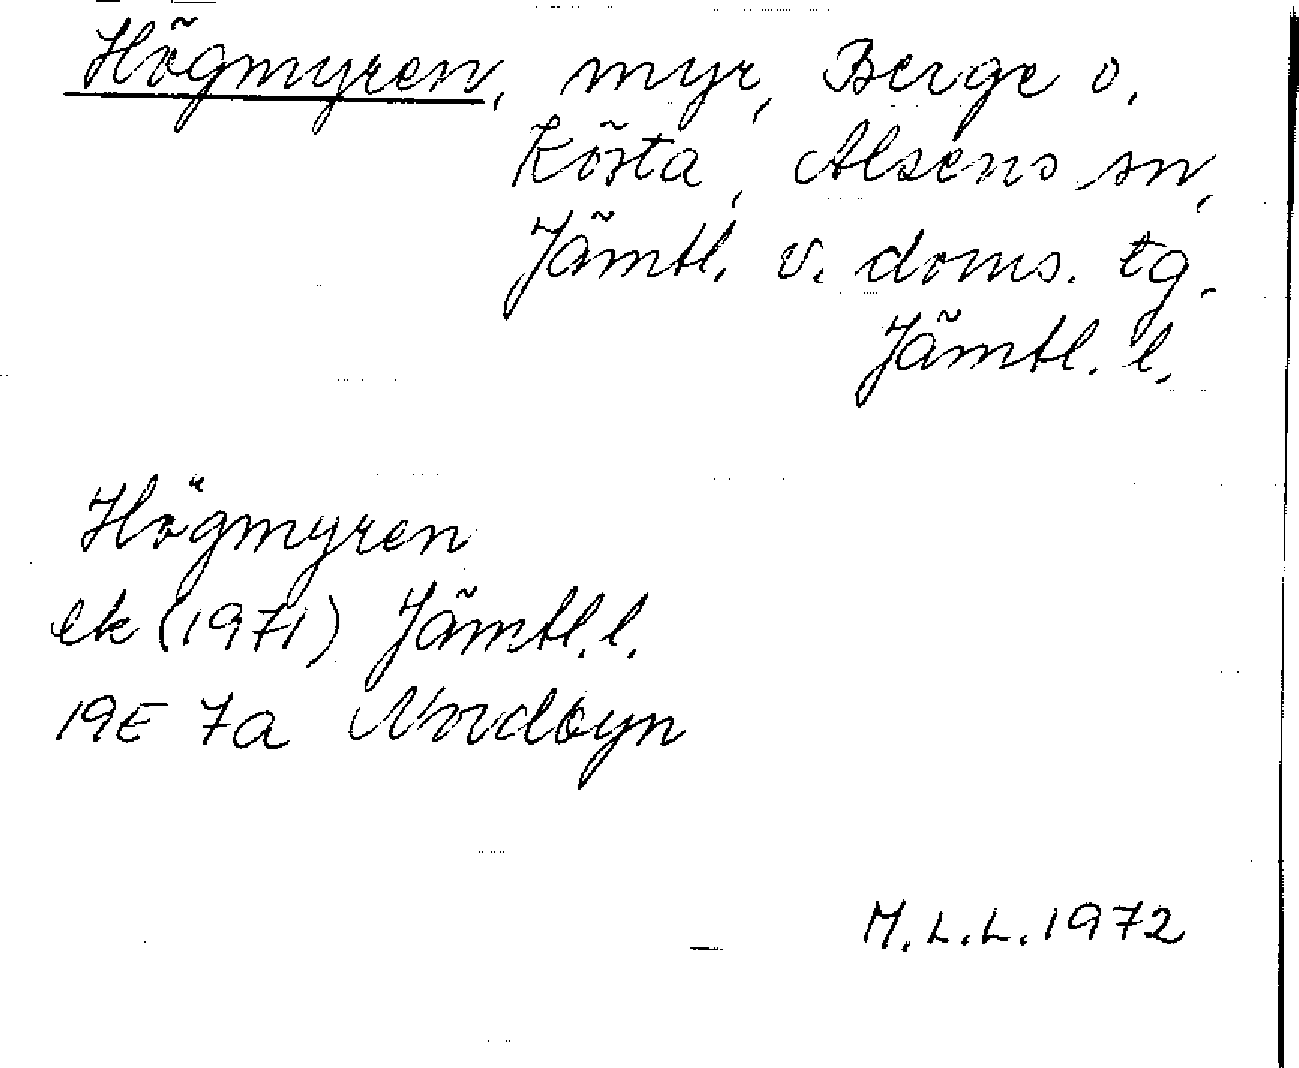 Högmyren, myr, Berge o.
Kösta, Alsens sn,
Jämtl. v. doms. tg.
Jämtl. l.
Högmyren
ek (1971) Jämtl. l.
19E 7a Nordbyn
M.L.L. 1972